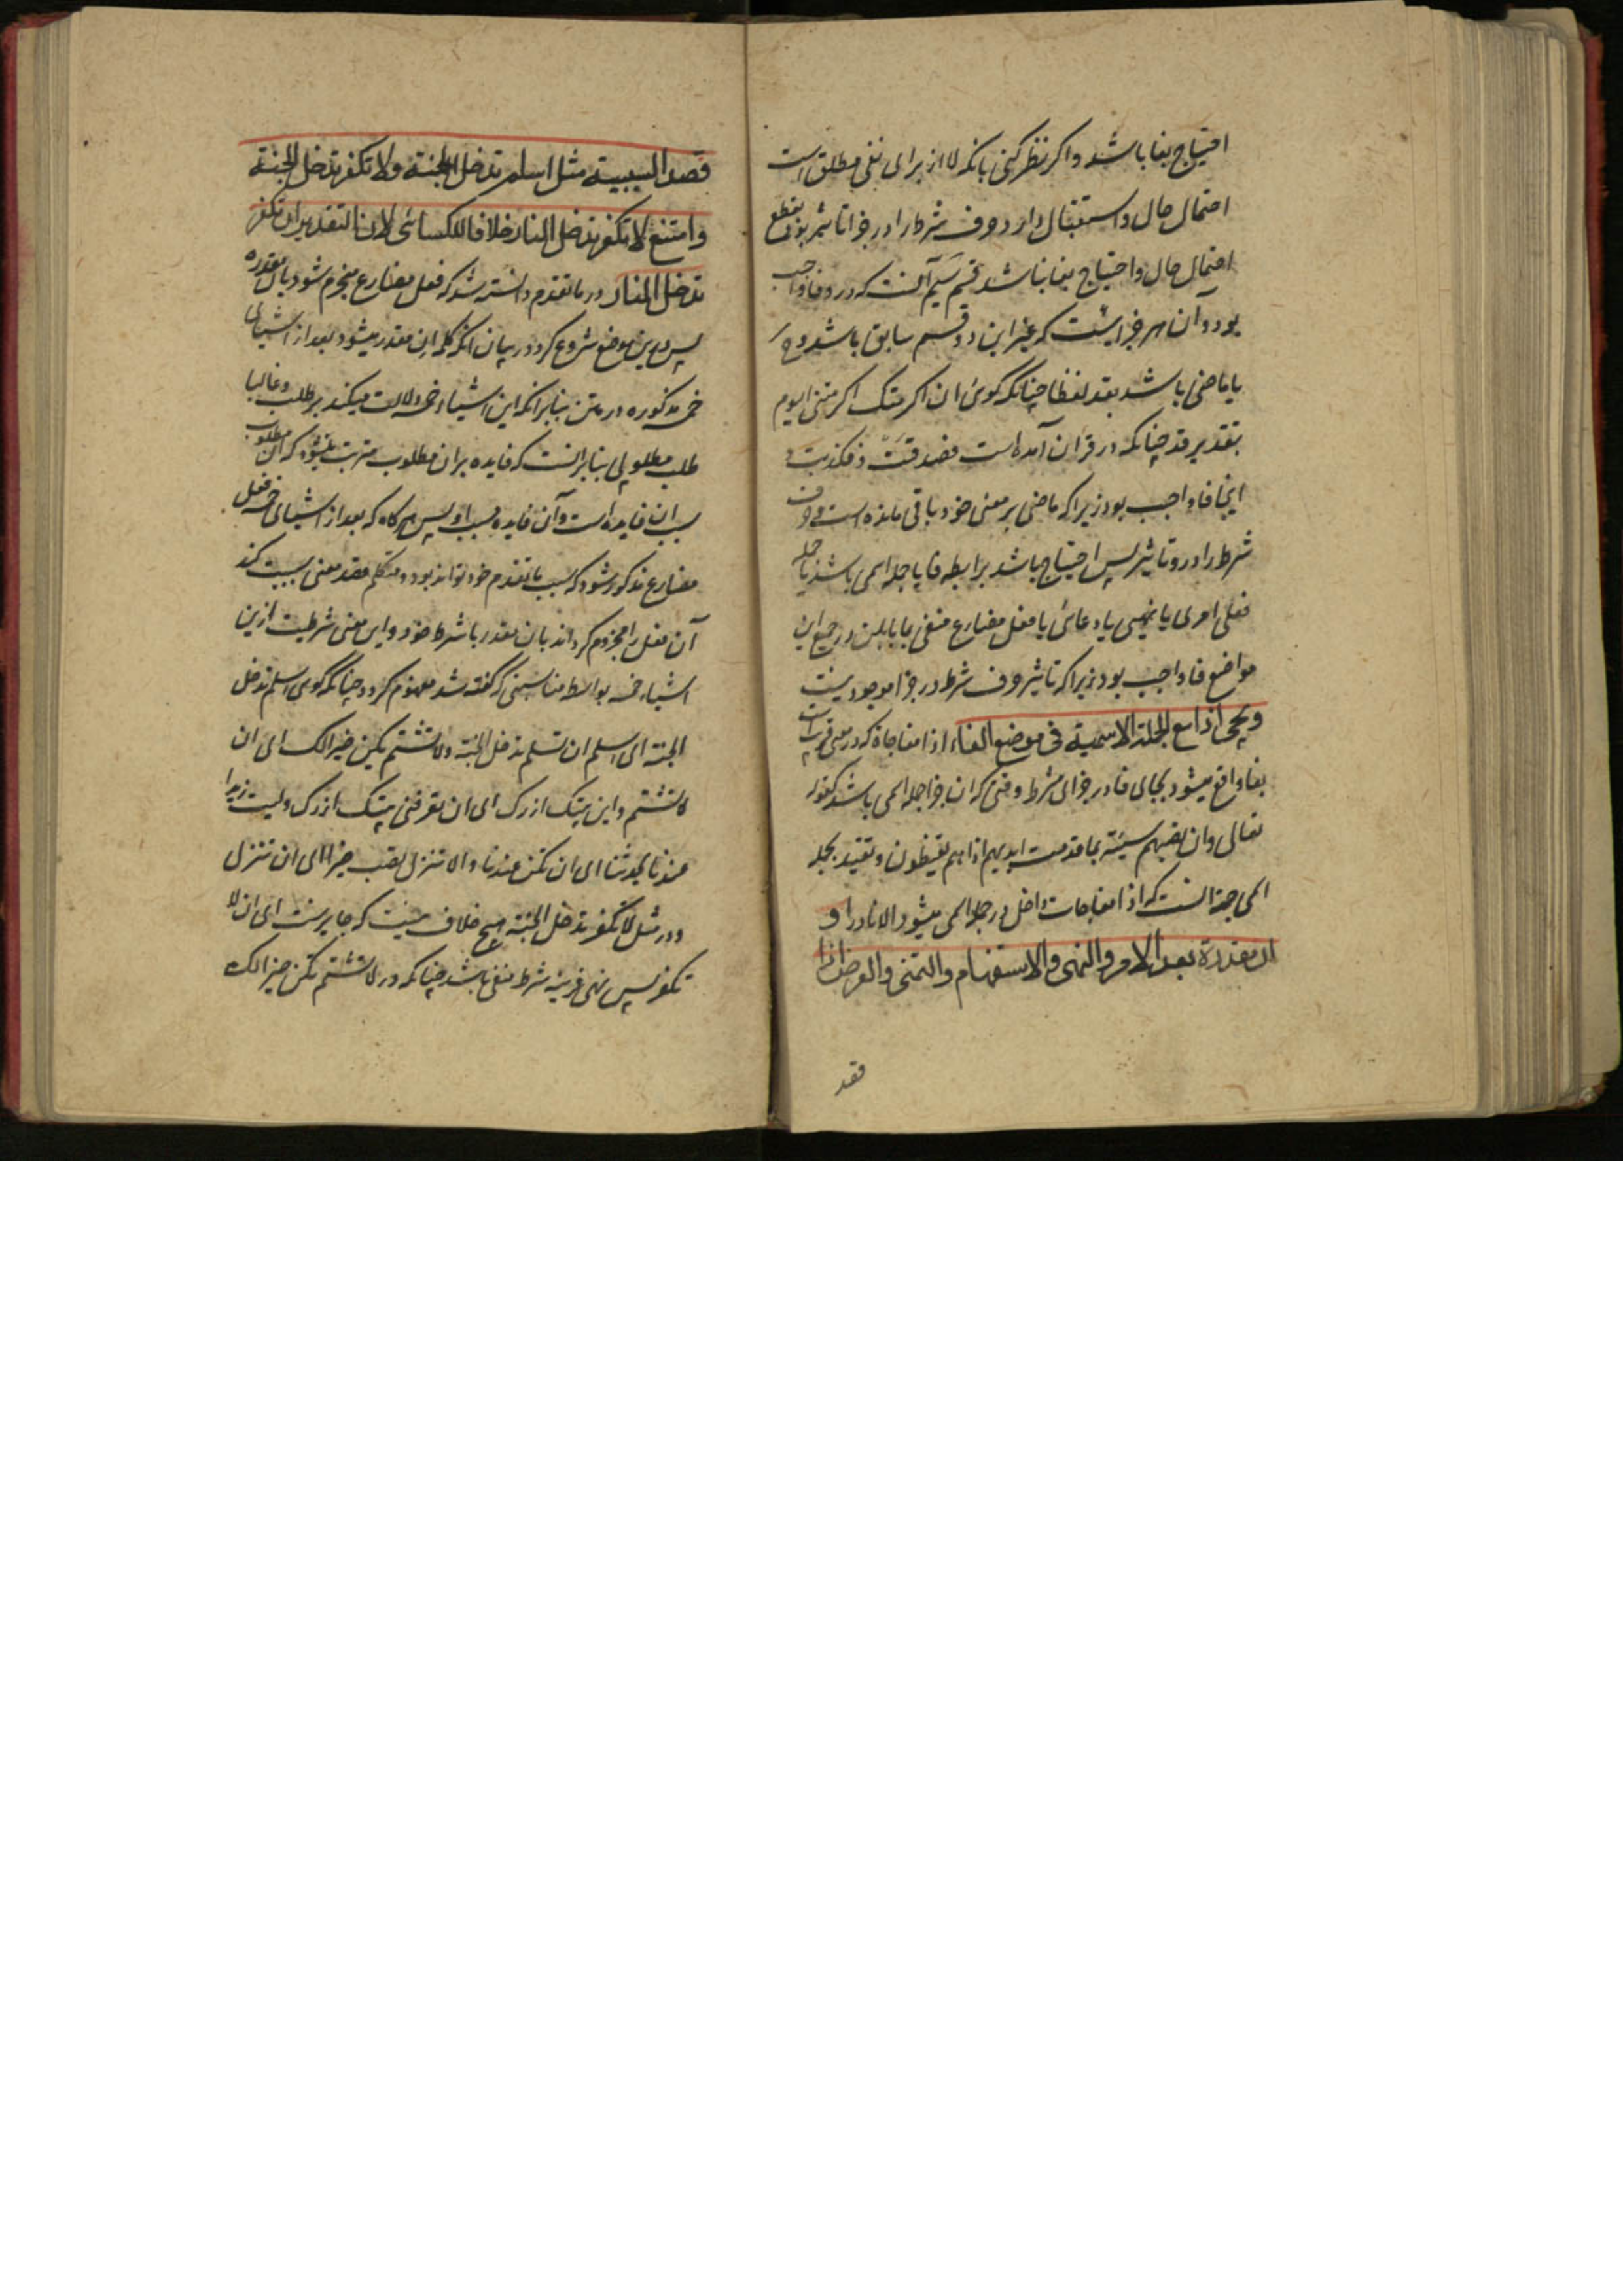 احتیاج بفا باشد و اکر نظر کنی بانکه لا از برای نفی مطلق است
احتمال حال و استقبال دارد و حرف شرط را در جزا تاثیر بود بقطع
احتمال حال و احتیاج بفا نباشد قسم سیم آنست که در و فا واجب
بود و آن هر جزایست که غیر این دو قسم سابق باشد و ح
یا ماضی باشد بقد لفظا چنانکه کوئی ان اکرمتک اکرمتنی الیوم
بتقدیر قد چنانکه در قران آمده است فصدقت و فکذبت و
اینجا فا واجب بود زیرا که ماضی بر معنی خود باقی مانده است و حرف
شرط را درو تاثیر پس احتیاج باشد برابطه فا یا جمله اسمی باشد یا جمله
فعلی امری یا نهیی یا دعائی یا فعل مضارع منفی بما یا بلن در جمیع این
مواضع فا واجب بود زیرا که تاثیر حرف شرط در جزا موجود نیست
ویجئ اذا مع الجملة الاسمیة فی موضع الفاء اذا مفاجاة که در معنی قریب است
بفا واقع میشود بجای فا در جزای شرط وقتی که ان جزا جمله اسمی باشد کقوله
تعالی وان تصبهم سیئة بما قدمت ایدیهم اذا هم یقنطون و تقیید بجمله
اسمی جهة انست که اذا مفاجات داخل در جمله اسمی میشود الا نادرا و
ان مقدرة بعد الامر والنهی والاستفهام والتمنی والعرض اذا
قصد
قصد السببیة مثل اسلم تدخل الجنة ولا تکفر تدخل الجنة
وامتنع لا تکفر تدخل النار خلافا للکسائی لان التقدیر ان تکفر
تدخل النار در ما تقدم دانسته شد که فعل مضارع مجزوم شود بان مقدره
پس درین موضع شروع کرد در بیان آنکه کلمه ان مقدر میشود بعد از اشیای
خمسه مذکوره در متن بنابر آنکه این اشیاء خمسه دلالت میکند بر طلب و غالبا
طلب مطلوبی بنابر انست که فایده بران مطلوب مترتب میشود که ان مطلوب
سبب ان فایده است و آن فایده مسبب او پس هر کاه که بعد از اشیای خمسه فعل
مضارع مذکور شود که مسبب ما تقدم خود تواند بود و متکلم قصد معنی سببیت کند
آن فعل را مجزوم کرداند بان مقدر با شرط خود و این معنی شرطیت ازین
اشیاء خمسه بواسطه مناسبتی که گفته شد مفهوم کردد چنانکه کوی اسلم تدخل
الجنة ای اسلم ان تسلم تدخل الجنة ولا تشتم یکن خیرا لک ای ان
لا تشتم و این بیتک ازرک ای ان تعرفنی بیتک ازرک ولیت زیدا
عندنا یحدثنا ای ان یکن عندنا و الا تنزل تصب خیرا ای ان تنزل
و در مثل لا تکفر تدخل الجنة هیچ خلاف نیست که جایزست ای ان لا
تکفر پس نهی قرینه شرط منفی باشد چنانکه در لا تشتم یکن خیرا لک